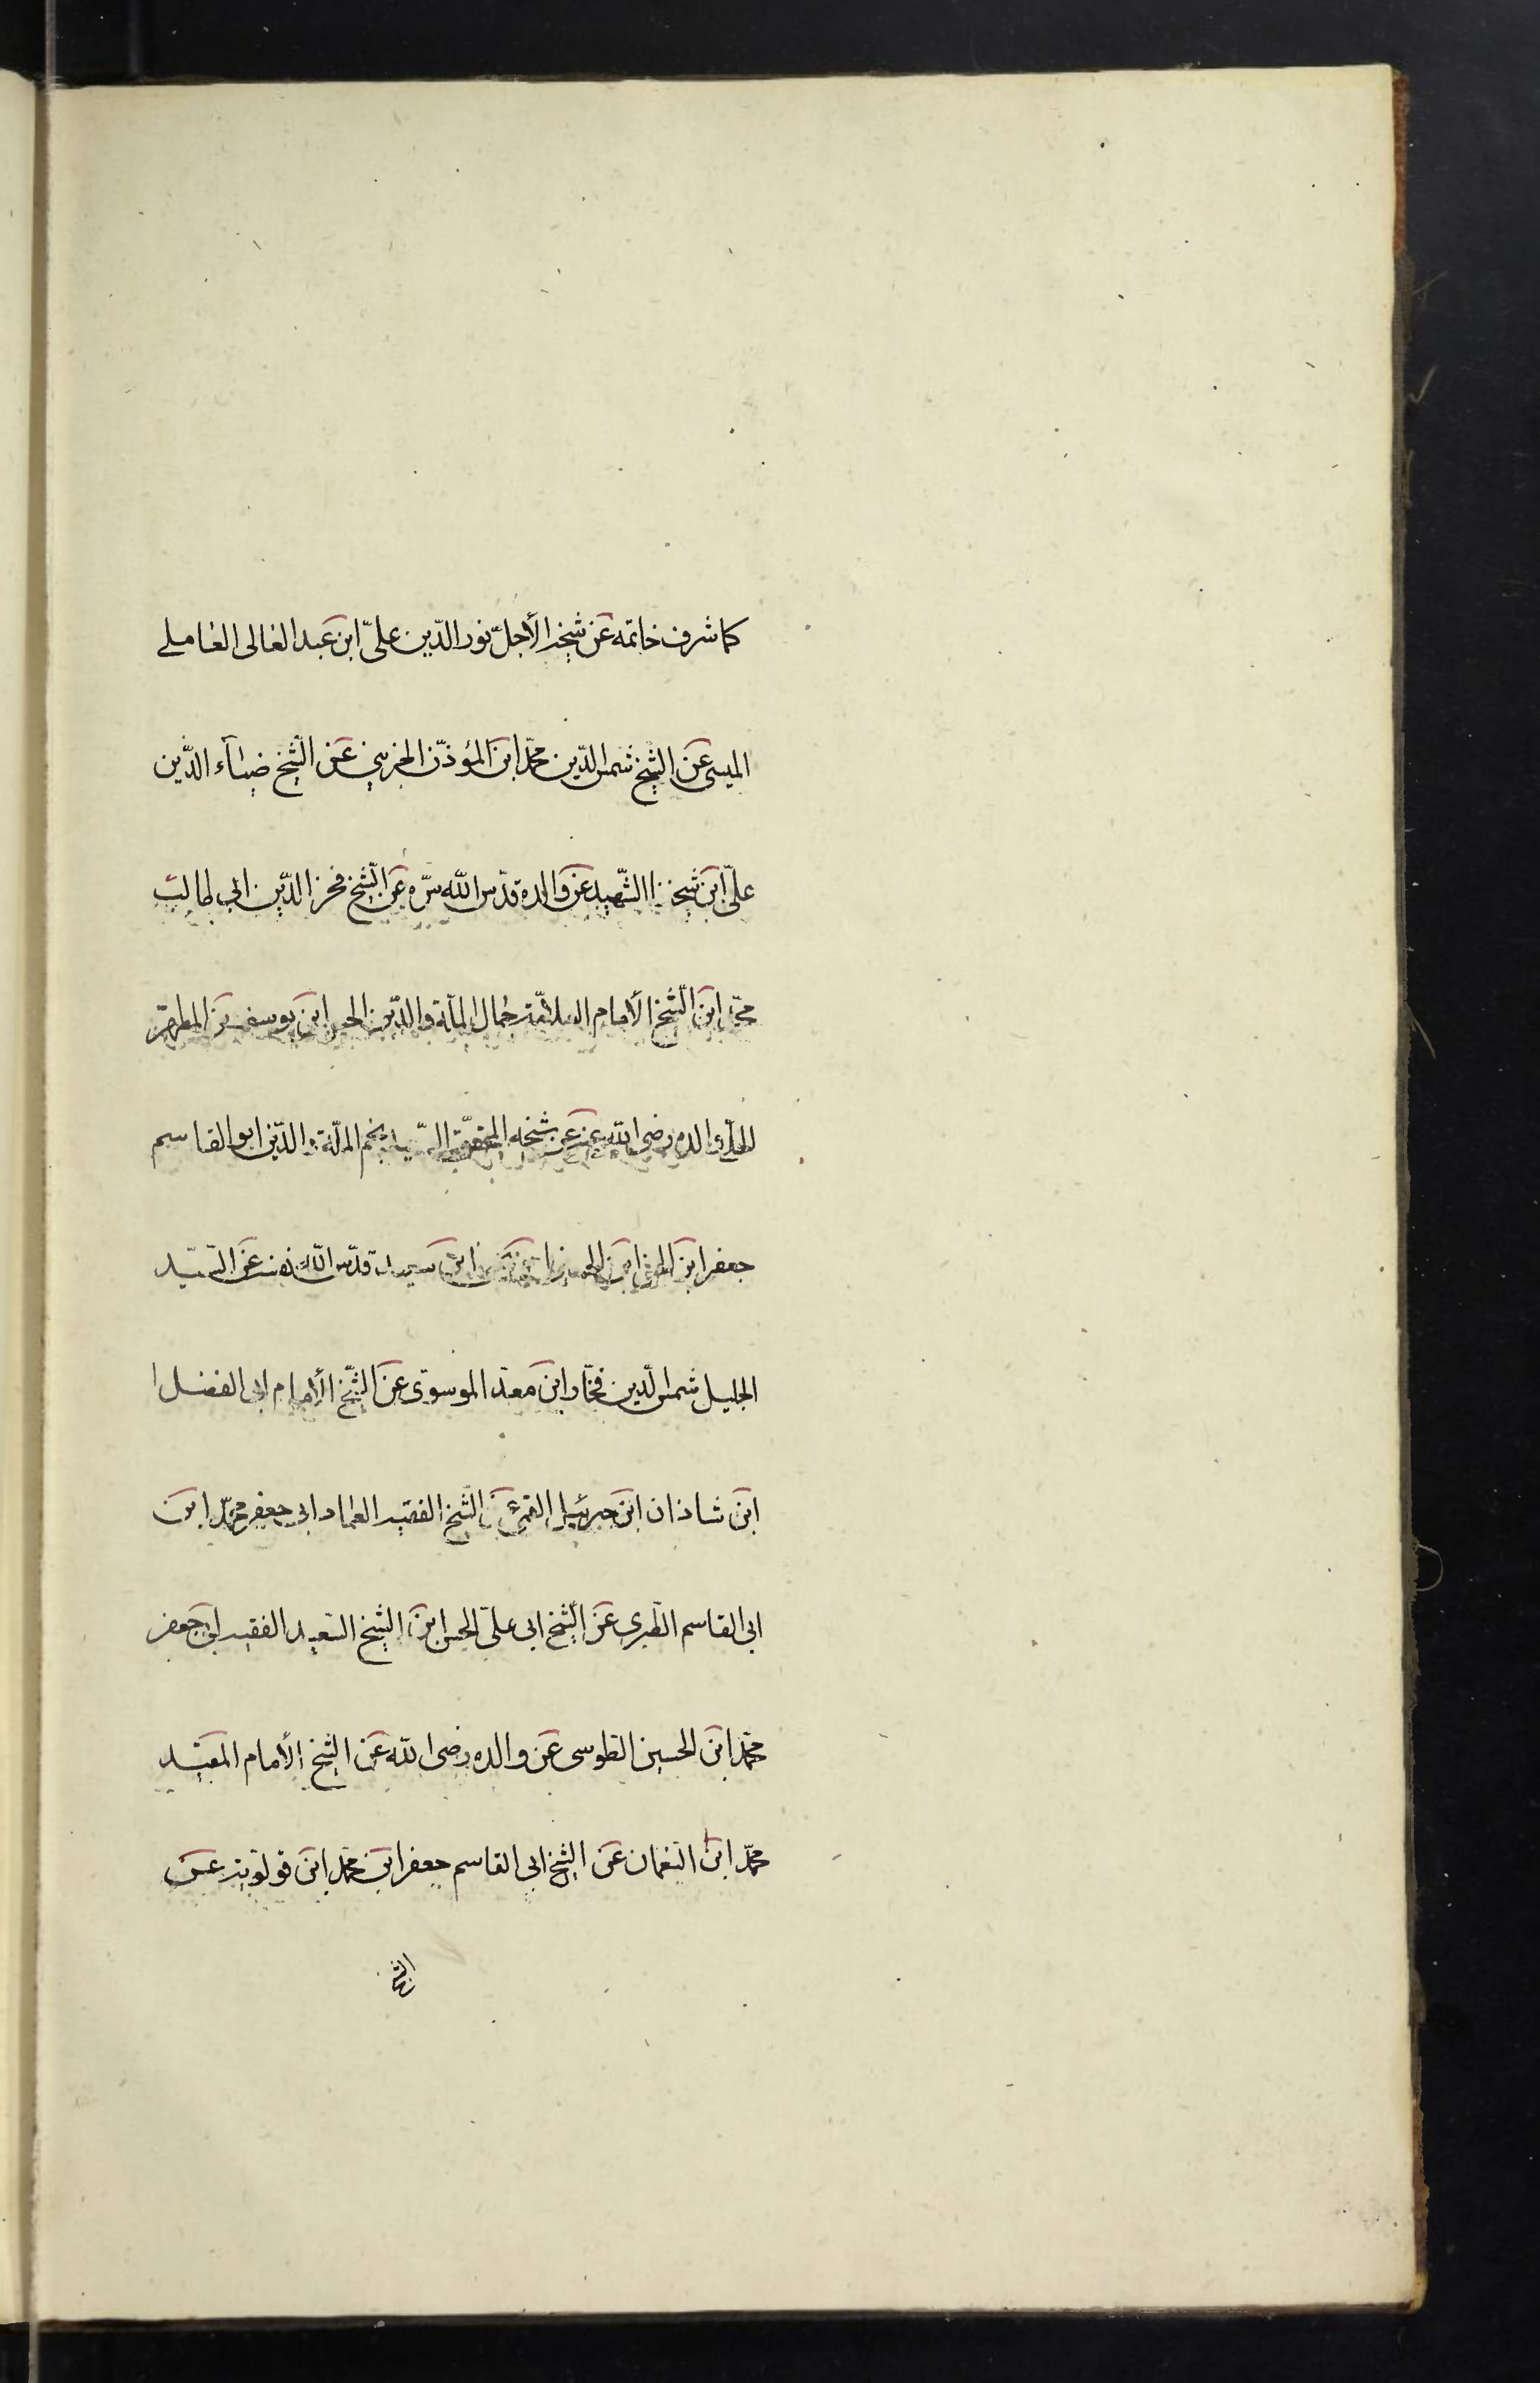 كما شرف خاتمه عن شيخه الأجلّ نور الدّين علىّ ابن عبد العالى العاملے
الميسى عن الشيخ شمس الدّين محمّد ابن المؤذّن الجزينى عن الشيخ ضياء الدّين
علىّ ابن شيخنا الشّهيد عن والده قدّس اللّه سرّه عن الشّيخ فخر الدّين ابى طالب
محمّد ابن الشّيخ الأمام العلاّمة جمال الملّة والدّين الحسن ابن يوسف بن المطهّر
والده رضى اللّه عنه عن شيخه المحقّق السّعيد نجم الملّة والدّين ابو القاسم
جعفر ابن الحسن ابن يحيى ابن سعيد قدّس اللّه نفسه عن السّيّد
الجليل شمس الدّين فخّار ابن معد الموسوى عن الشّيخ الأمام ابى الفضل ا
ابن شاذان ابن جبرئيل القمى عن الشّيخ الفقيه العماد ابى جعفر محمّد ابن
ابى القاسم الطّبرى عن الشّيخ ابى علىّ الحسن ابن الشّيخ السّعيد الفقيه ابى جعفر
محمّد ابن الحسين الطوسى عن والده رضى اللّه عن الشّيخ الأمام المفيد
محمّد ابن النعمان عن الشّيخ ابى القاسم جعفر ابن محمّد ابن قولويه عن
الشّيخ